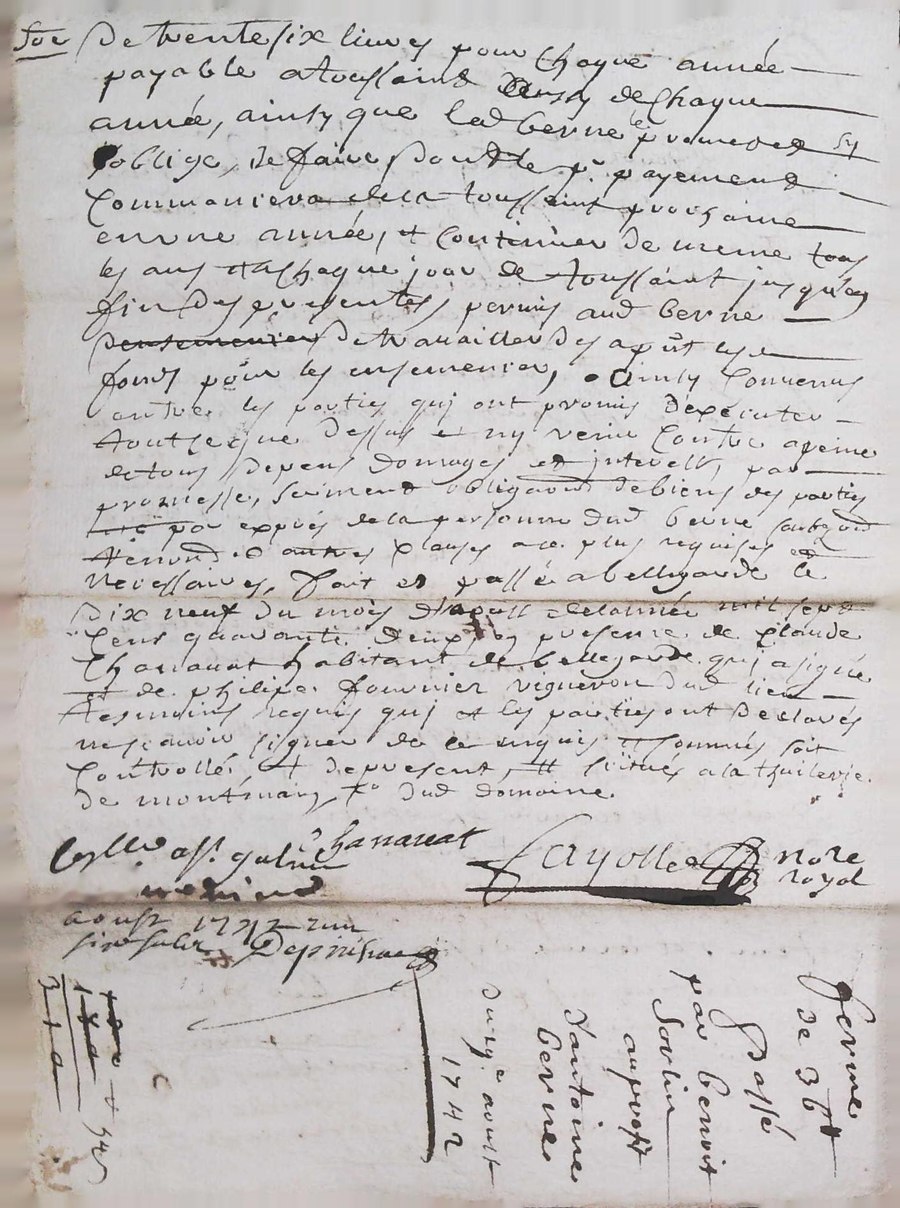 de trente six livres pour chaque année
payable a toussaint de chaque
année, ainsy que led berne promet et sy
oblige de faire dont le pr. payement
commancera de la toussaint prochaine
en une année, et continuer de meme tous
les ans et a chaque jour de toussaint jusqu'en
fin des presentes, permis aud berne
de travailler des a pnt les
fonds pour les ensemencer, ainsy convenus
entre les parties qui ont promis d'executer
tout ce que dessus et ny venir contre a peine
de tous depens domages et interests, par
promesse, serment obligaon de biens des parties
par exprés de la personne dud berne
et autres clauses a ce plus requises et
necessaires, fait et passé a bellegarde le
dix neuf du mois de l'année mil sept
cent quarante deux en presence de claude
Chanauat habitant de bellegarde qui a signé
et de philipe fournier vigneron dud lieu
tesmoins requis qui et les parties ont declarés
ne scavoir signer de ce enquis et sommés soit
controllé, et de present, situés a la thuilerie
de dud domaine
Chanauat
Fayolle nore
royal
aoust 1742
six sols
ferme
de 36 #
passé
par benoit
Sorlin
au profit
d'antoine
berne
du 9e aoust
1742